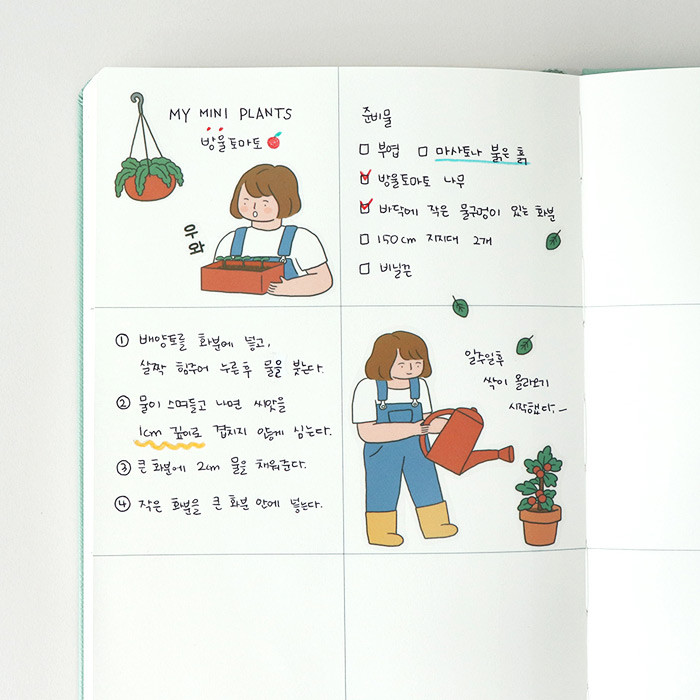 MY MINI PLANTS
방울토마토
우와
준비물
부엽 마사토나 붉은 흙
방울토마토 나무
바닥에 작은 물구멍이 있는 화분
150cm 지지대 2개
비닐끈
① 배양토를 화분에 넣고,
살짝 힘주어 누른후 물을 붓는다.
② 물이 스며들고 나면 씨앗을
1cm 깊이로 겹치지 않게 심는다.
③ 큰 화분에 2cm 물을 채워준다.
④ 작은 화분을 큰 화분 안에 넣는다.
일주일후
싹이 올라오기
시작했다.~